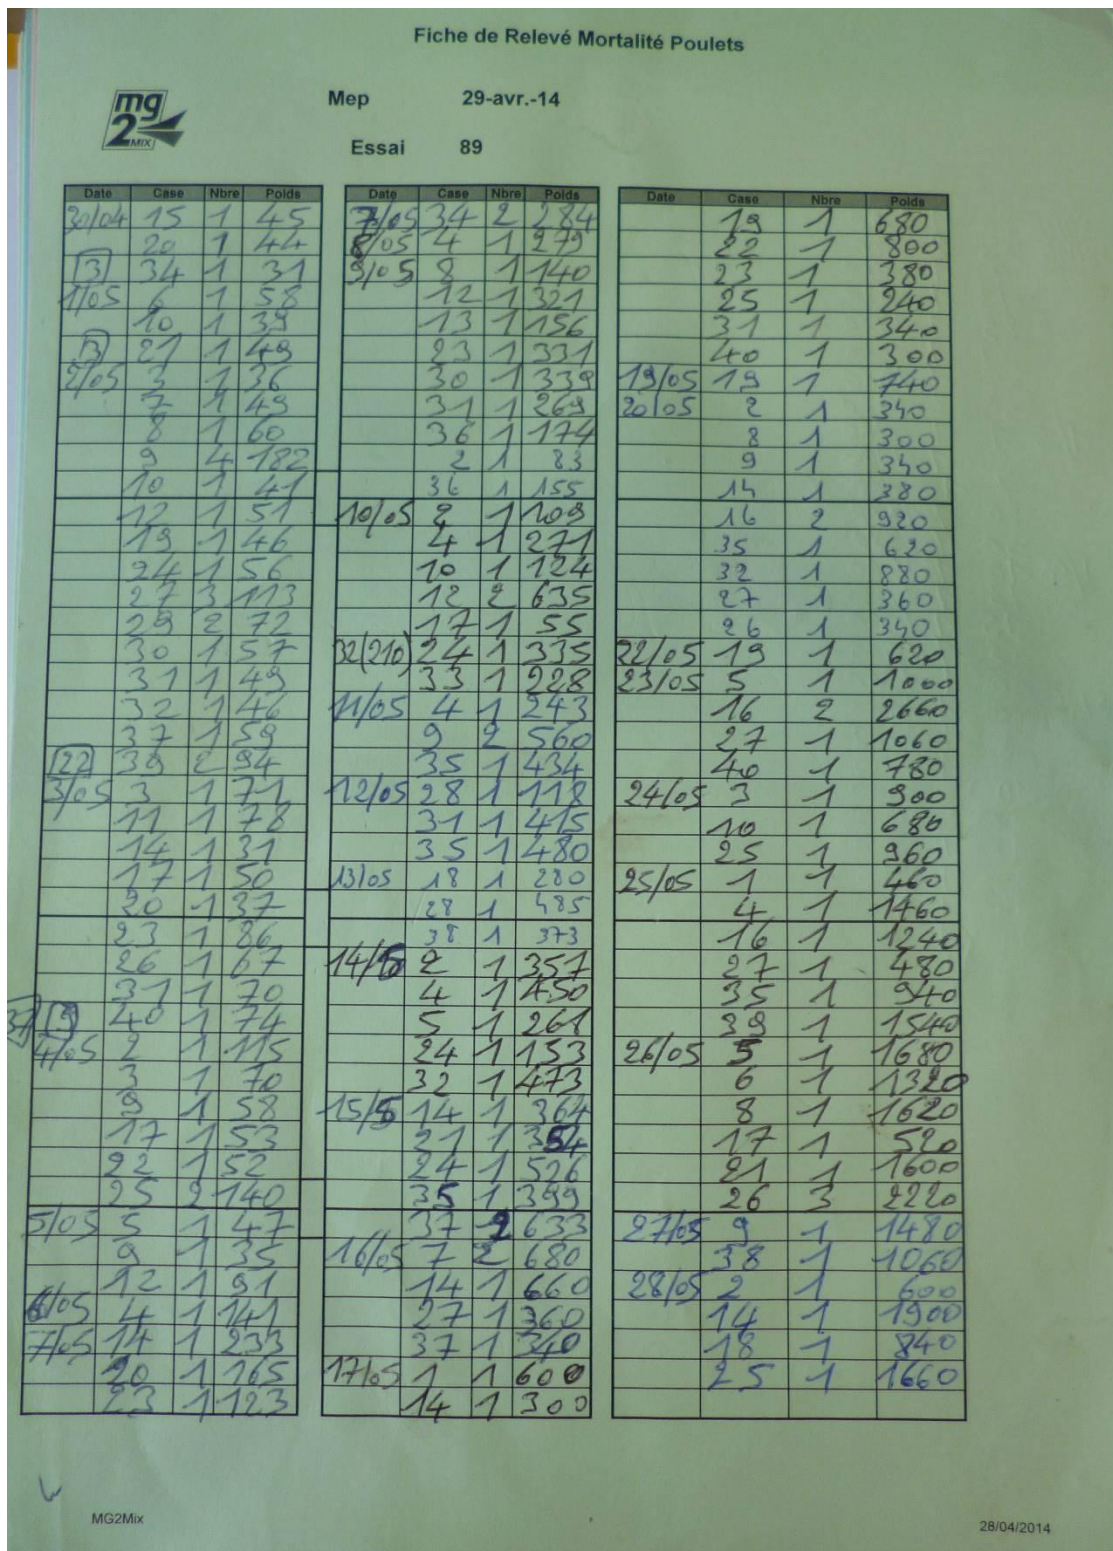 Fiche de Relevé Mortalité Poulets
mg
2
MIX
Mep 29-avr.-14
Essai 89
Date Case Nbre Poids
30/04 15 1 45
20 1 44
3 34 1 31
1/05 6 1 58
10 1 39
3 21 1 49
2/05 3 1 36
7 1 49
8 1 60
9 4 182
10 1 41
12 1 51
19 1 46
24 1 56
27 3 113
29 2 72
30 1 57
31 1 49
32 1 46
37 1 59
22 39 2 94
3/05 3 1 71
11 1 78
14 1 31
17 1 50
20 1 37
23 1 86
26 1 67
31 1 70
37 19 40 1 74
4/05 2 1 115
3 1 70
9 1 58
17 1 53
22 1 52
25 2 140
5/05 5 1 47
9 1 35
12 1 91
6/05 4 1 141
7/05 14 1 233
20 1 165
23 1 123
Date Case Nbre Poids
7/05 34 2 284
8/05 4 1 279
9/05 8 1 140
12 1 321
13 1 156
23 1 331
30 1 339
31 1 269
36 1 174
2 1 83
36 1 155
10/05 2 1 109
4 1 271
10 1 124
12 2 635
17 1 55
32(210) 24 1 335
33 1 228
11/05 4 1 243
9 2 560
35 1 434
12/05 28 1 118
31 1 415
35 1 480
13/05 18 1 280
28 1 485
38 1 373
14/5 2 1 357
4 1 450
5 1 261
24 1 153
32 1 473
15/5 14 1 364
21 1 354
24 1 526
35 1 399
37 2 633
16/05 7 2 680
14 1 660
27 1 360
37 1 340
17/05 1 1 600
14 1 300
Date Case Nbre Poids
19 1 680
22 1 800
23 1 380
25 1 240
31 1 340
40 1 300
19/05 19 1 740
20/05 2 1 340
8 1 300
9 1 340
14 1 380
16 2 920
35 1 620
32 1 880
27 1 360
26 1 340
22/05 19 1 620
23/05 5 1 1000
16 2 2660
27 1 1060
40 1 780
24/05 3 1 900
10 1 680
25 1 960
25/05 1 1 460
4 1 1460
16 1 1240
27 1 480
35 1 940
39 1 1540
26/05 5 1 1680
6 1 1320
8 1 1620
17 1 520
21 1 1600
26 3 2220
27/05 9 1 1480
38 1 1060
28/05 2 1 600
14 1 1900
18 1 840
25 1 1660
MG2Mix
28/04/2014